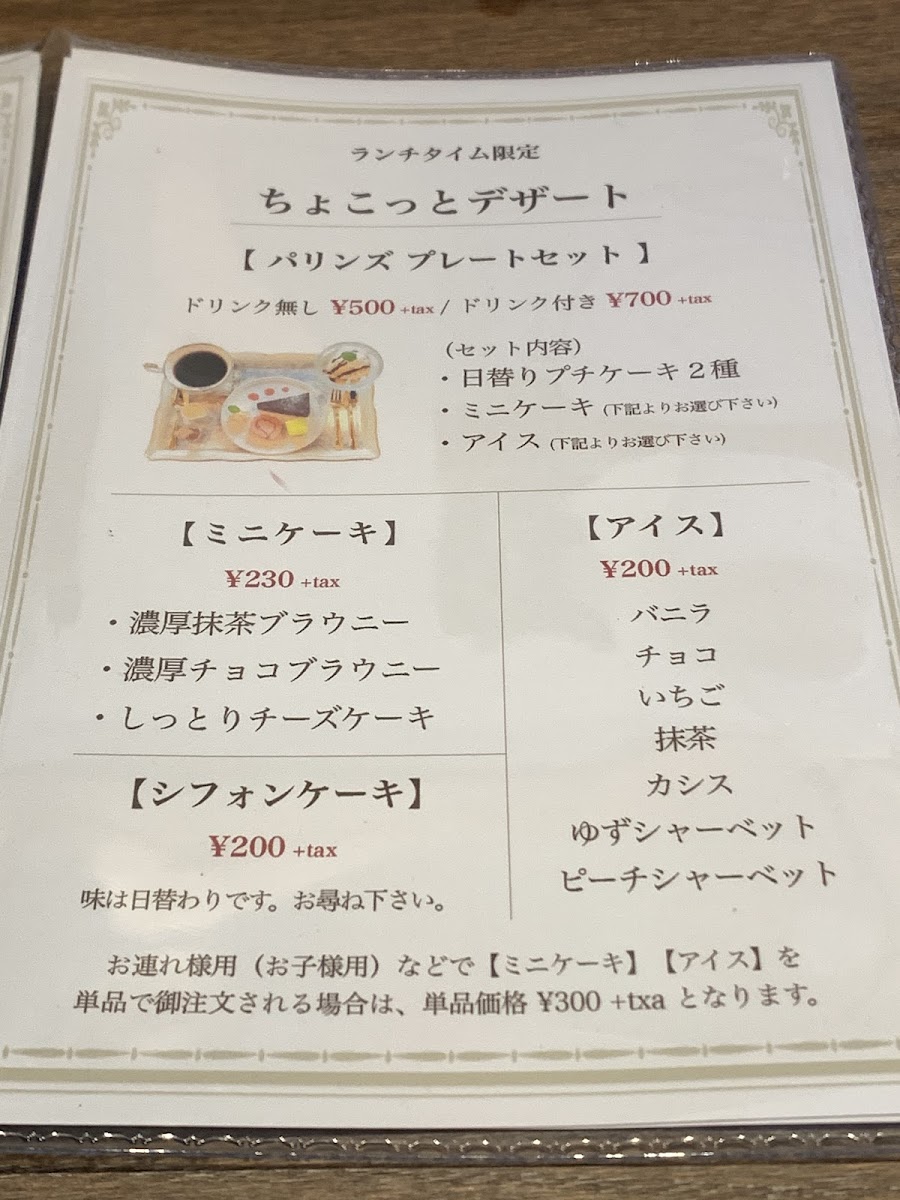 ランチタイム限定
ちょこっとデザート
【 パリンズ プレートセット 】
ドリンク無し ¥500 +tax / ドリンク付き ¥700 +tax
（セット内容）
・日替りプチケーキ２種
・ミニケーキ (下記よりお選び下さい)
・アイス (下記よりお選び下さい)
【ミニケーキ】
¥230 +tax
・濃厚抹茶ブラウニー
・濃厚チョコブラウニー
・しっとりチーズケーキ
【シフォンケーキ】
¥200 +tax
味は日替わりです。お尋ね下さい。
【アイス】
¥200 +tax
バニラ
チョコ
いちご
抹茶
カシス
ゆずシャーベット
ピーチシャーベット
お連れ様用（お子様用）などで【ミニケーキ】【アイス】を
単品で御注文される場合は、単品価格 ¥300 +txa となります。